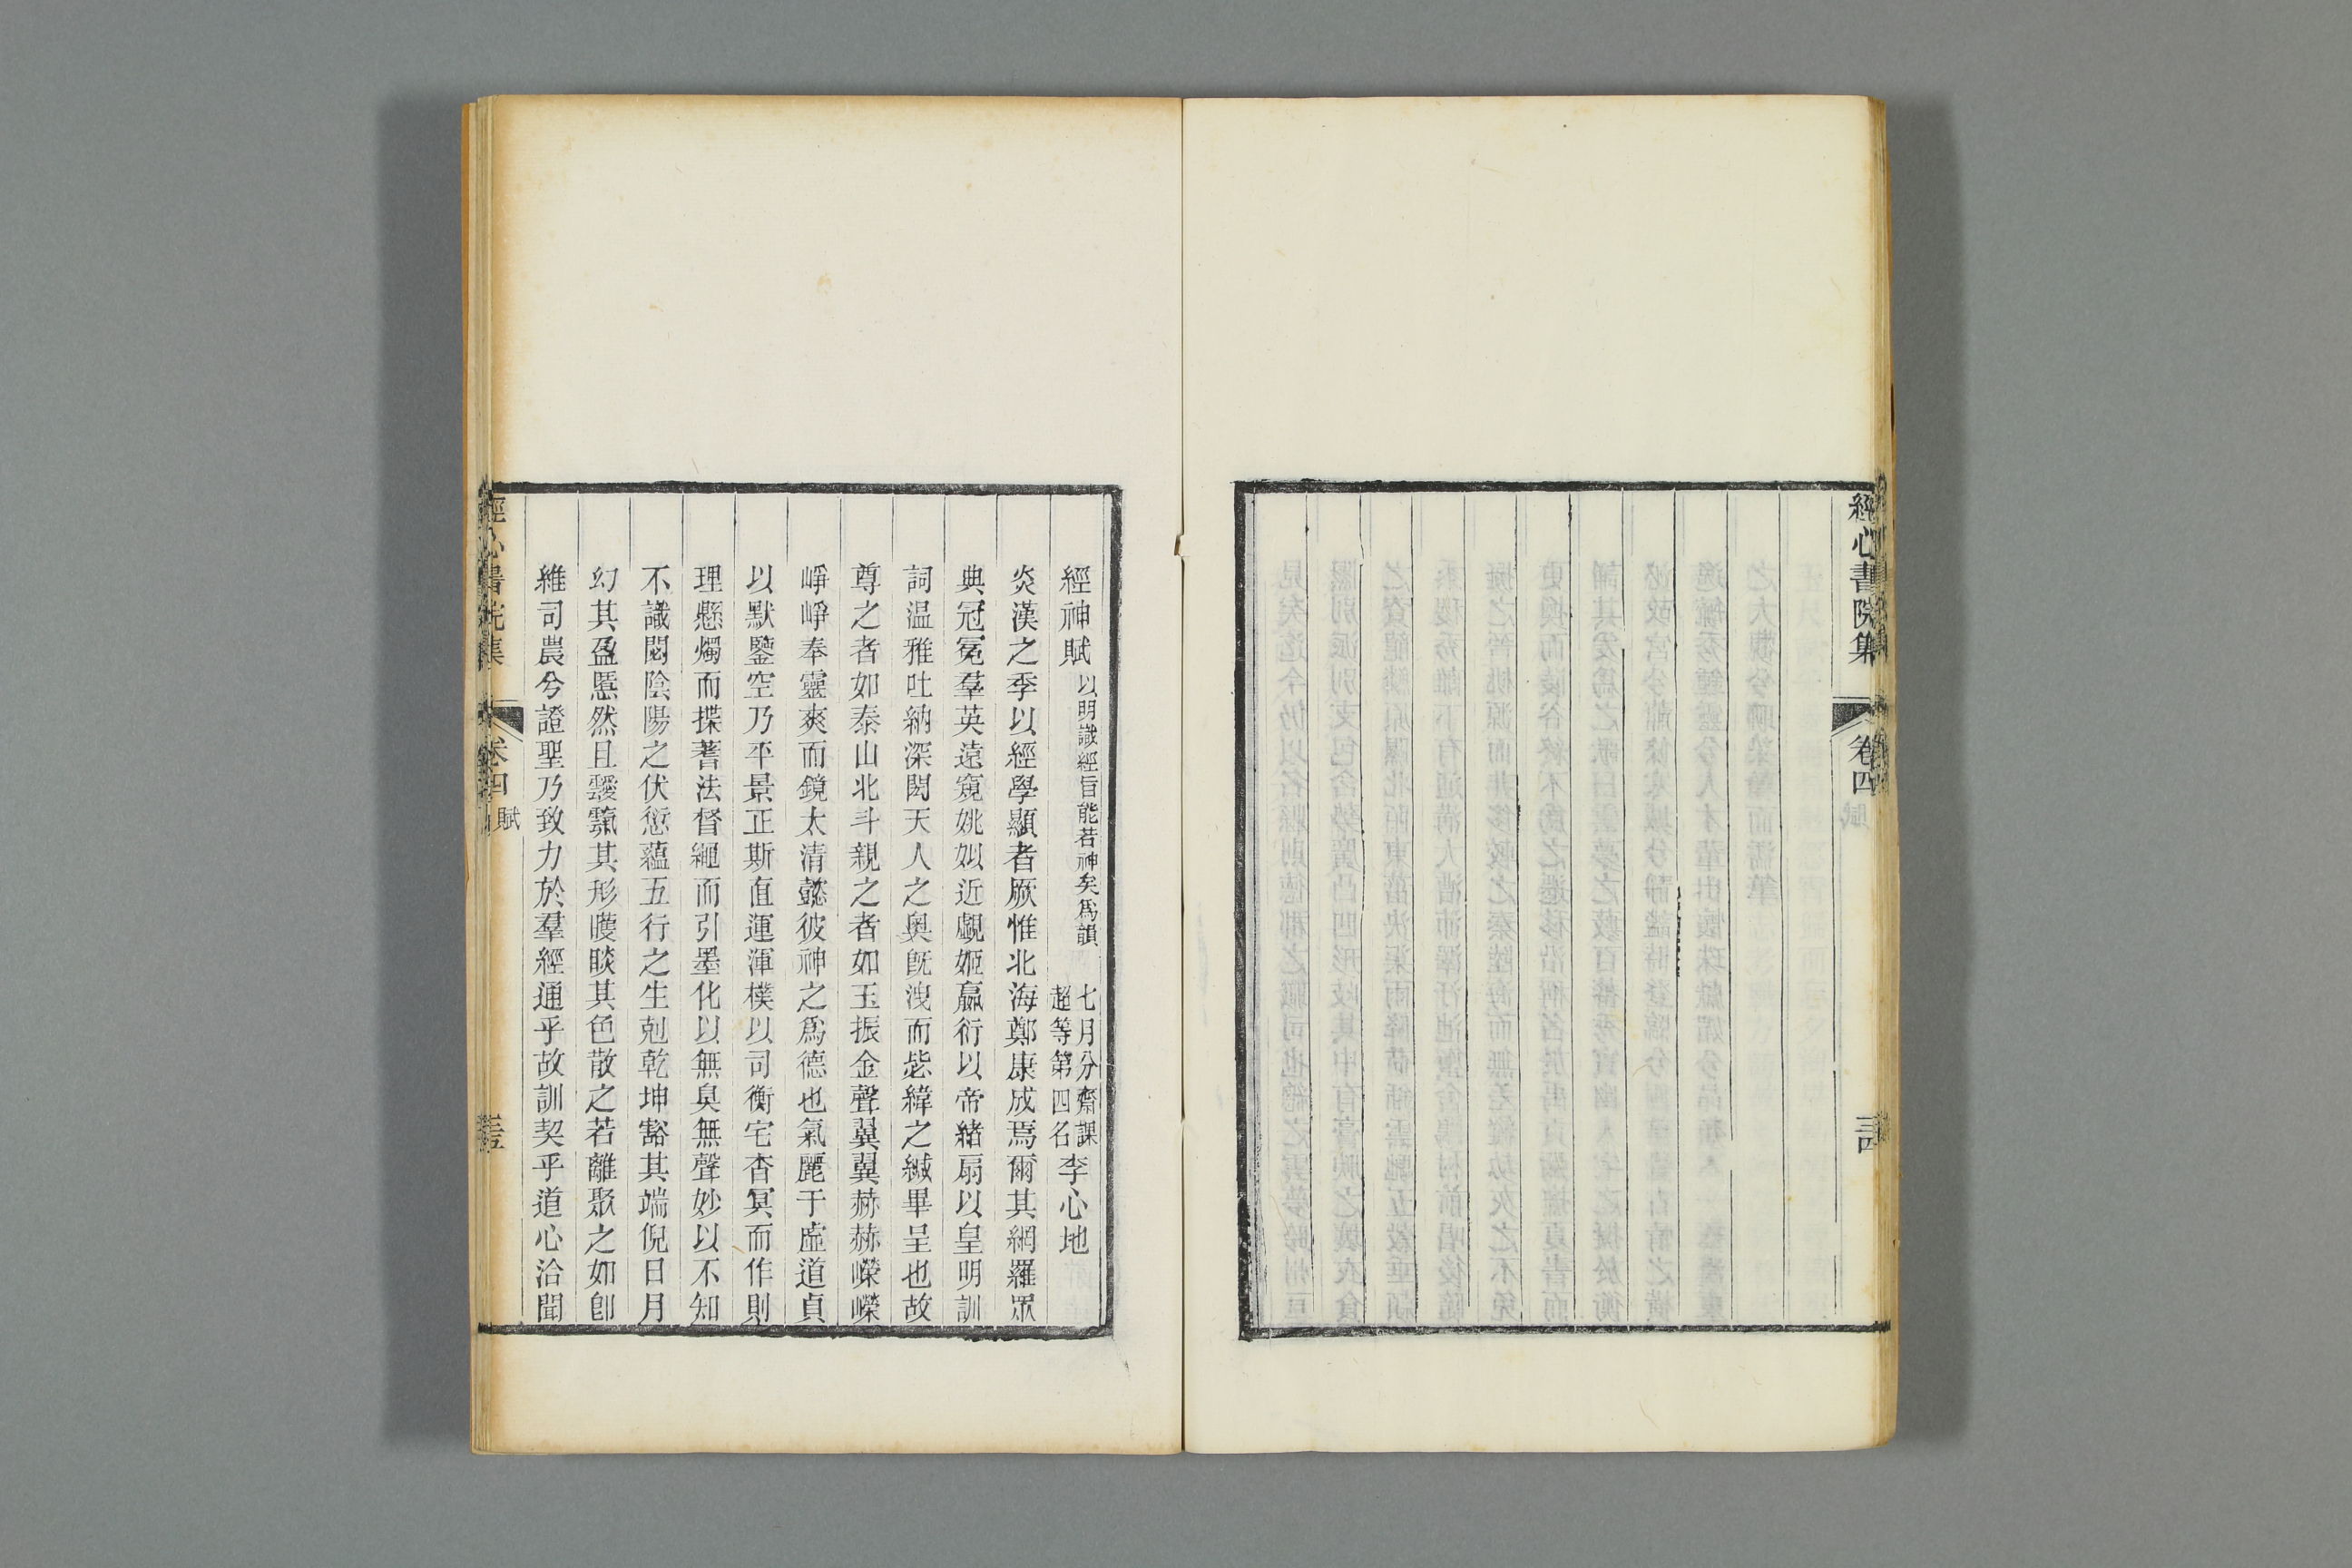 經心書院集
卷四
經神賦以明識經旨能若神矣爲韻
七月分齋課
超等第四名
李心地
炎漢之季以經學顯者厥惟北海鄭康成焉爾其網羅眾
典冠冕羣英遠窺姚姒近覷姬嬴衍以帝緒扇以皇明訓
詞温雅吐納深閎天人之奧旣洩而毖緯之緘畢呈也故
尊之者如泰山北斗親之者如玉振金聲翼翼赫赫嶸嶸
崢崢奉靈爽而鏡太清懿彼神之爲德也氣麗于虛道貞
以默鑒空乃平景正斯直運渾樸以司衡宅杳冥而作則
理懸燭而揲蓍法督繩而引墨化以無臭無聲妙以不知
不識閟陰陽之伏愆蘊五行之生剋乾坤豁其端倪日月
幻其盈慝然且靉靆其形曖睒其色散之若離聚之如卽
維司農兮證聖乃致力於羣經通乎故訓契乎道心洽聞
經心書院集
卷四
賦